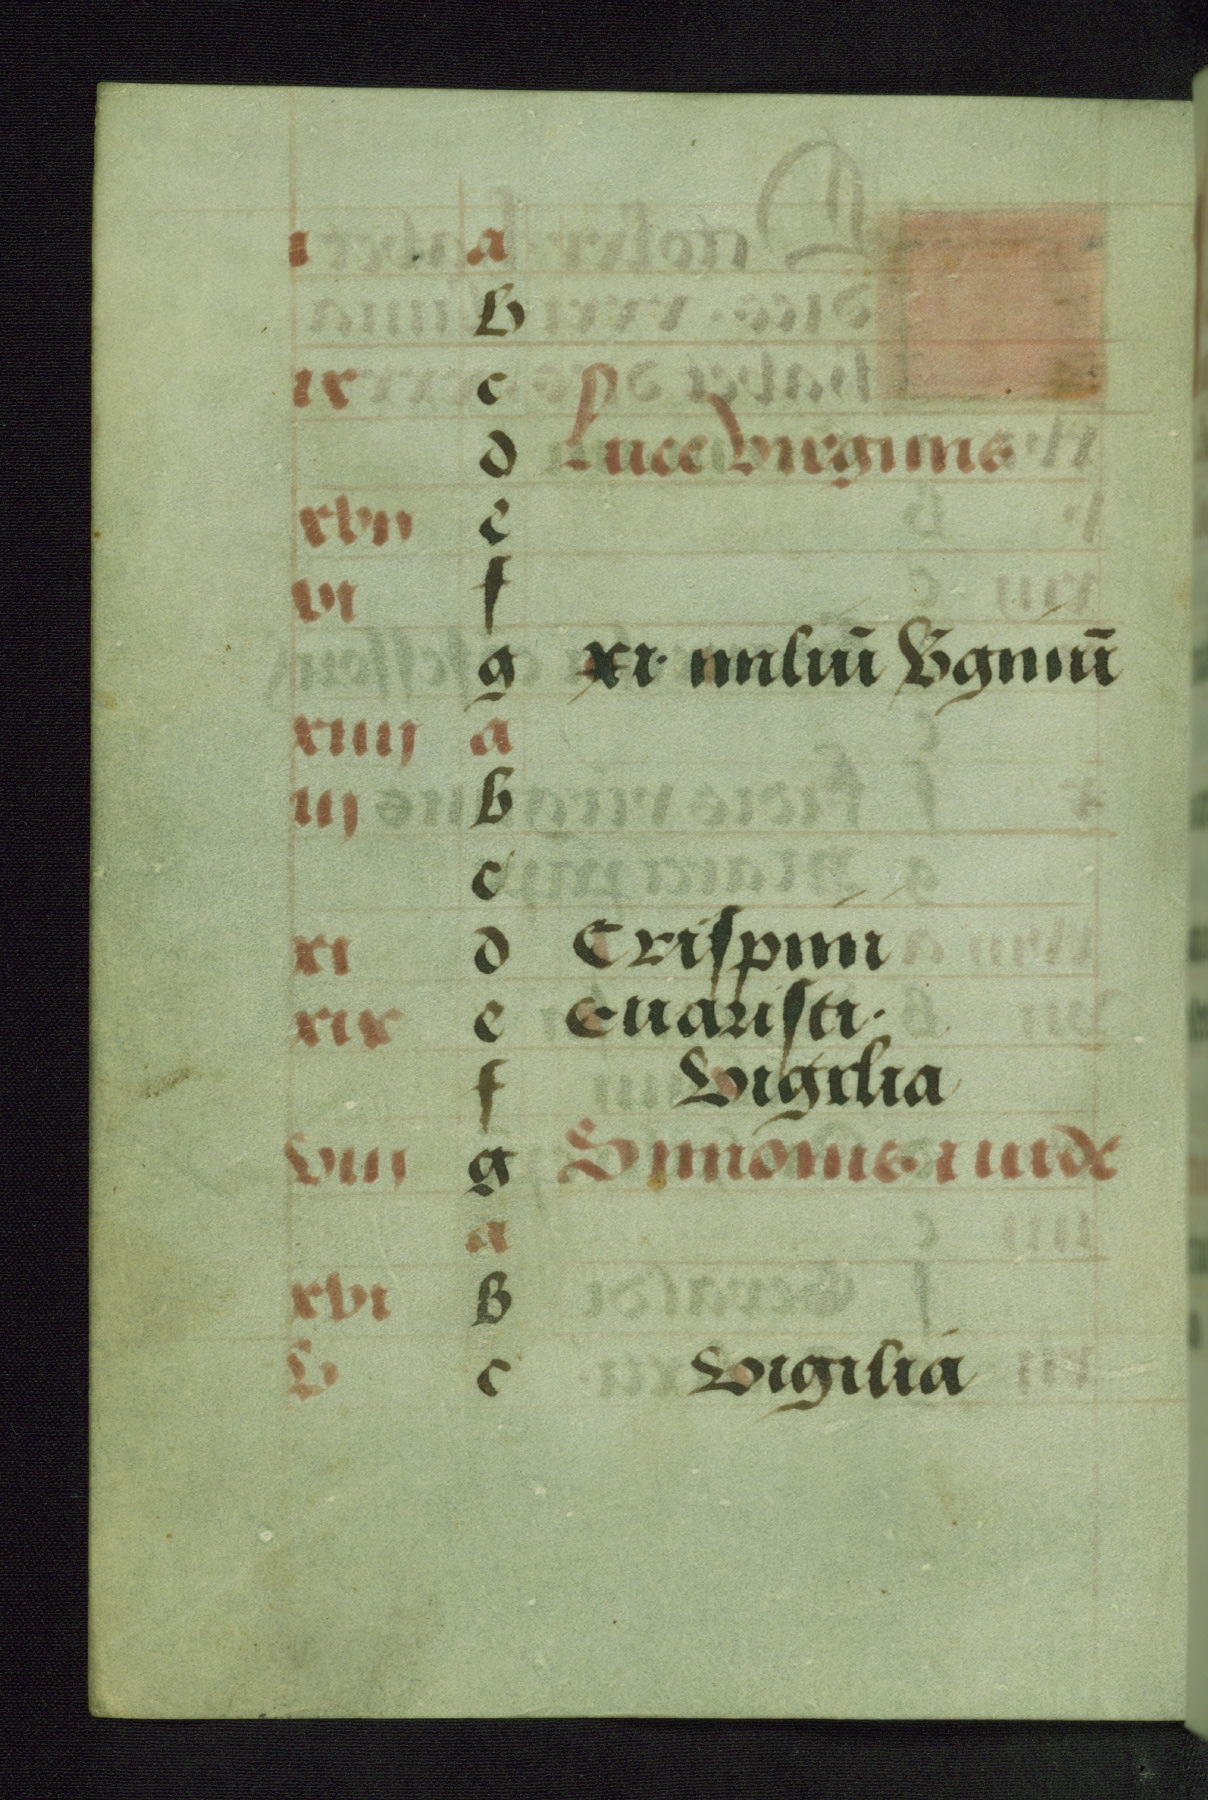 i a
b
ix c
d Luce Virginis
xvii e
vi f
g xi. miliū v̄gīnū
xiiij a
iij b
c
d Crispini
xi e Euaristi.
xix f Vigilia
viij g Simonis ⁊ iude
a
xvi b
v c Vigilia